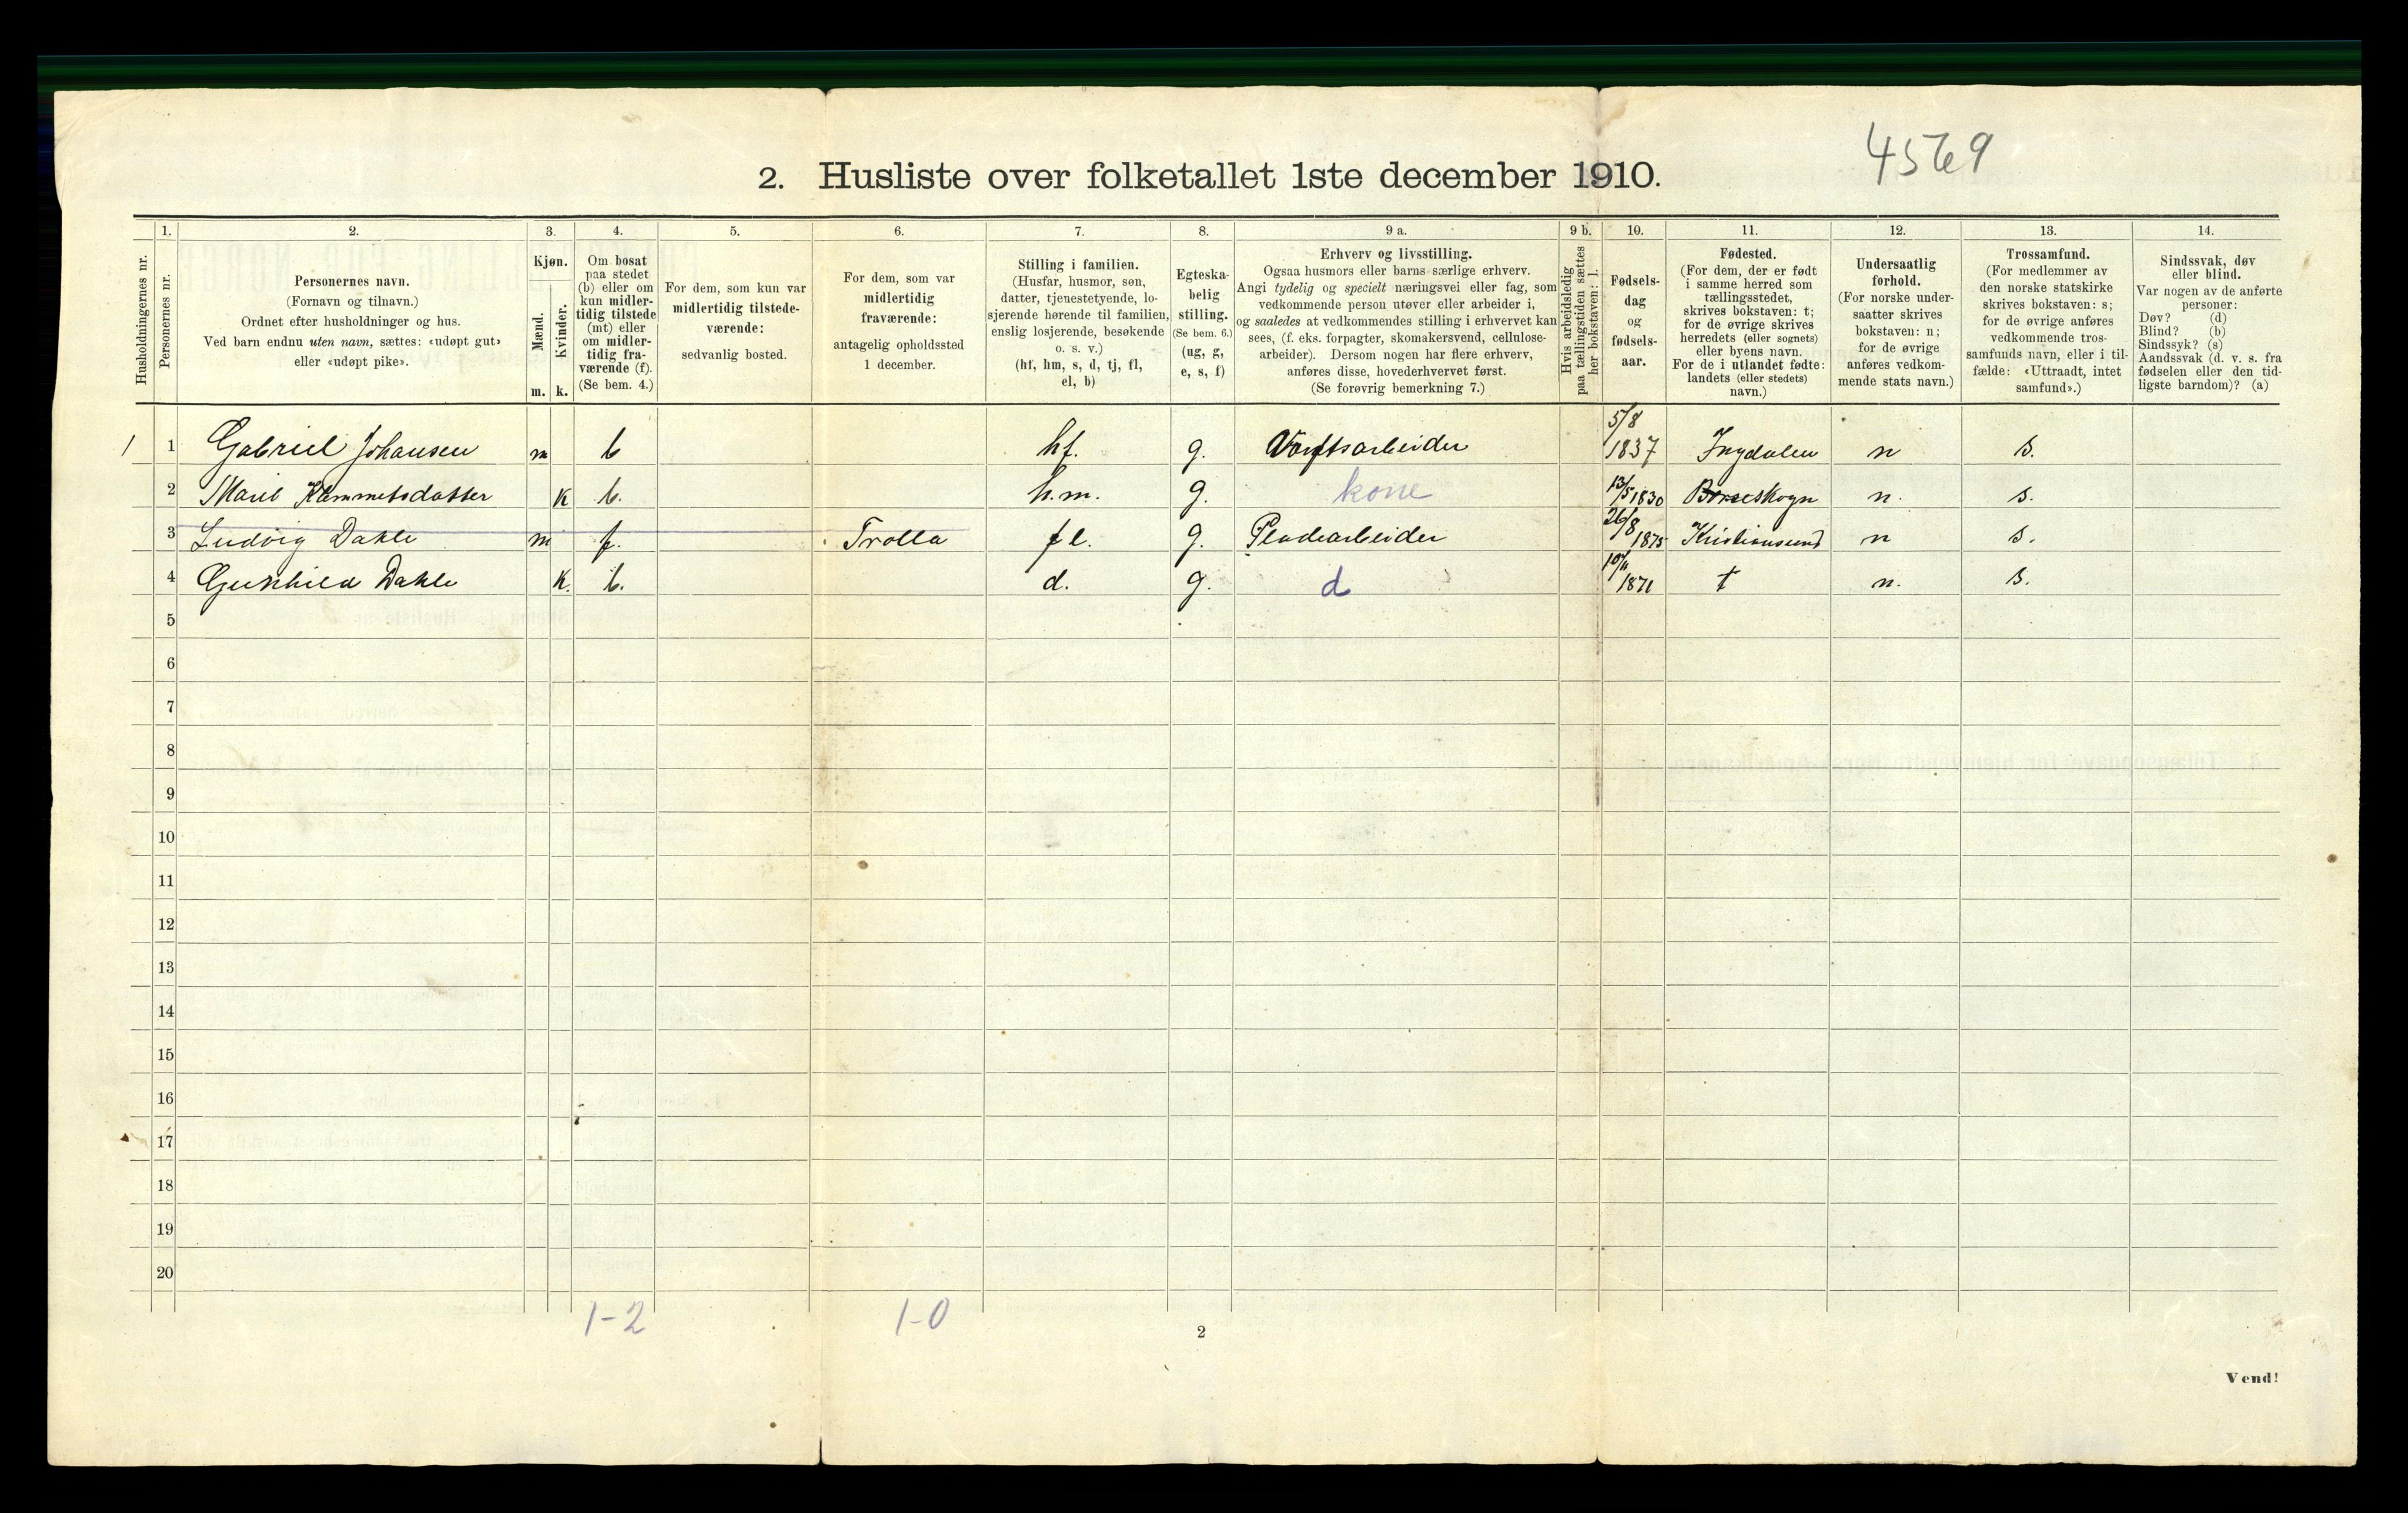 4569
2. Husliste over folketallet 1ste december 1910.
Husholdningernes nr.
1.
Personernes nr.
2.
Personernes navn.
(Fornavn og tilnavn.)
Ordnet efter husholdninger og hus.
Ved barn endnu uten navn, sættes: «udøpt gut»
eller «udøpt pike».
3.
Kjøn.
Mænd.
Kvinder.
m. k.
4.
Om bosat
paa stedet
(b) eller om
kun midler-
tidig tilstede
(mt) eller
om midler-
tidig fra-
værende (f).
(Se bem. 4.)
5.
For dem, som kun var
midlertidig tilstede-
værende:
sedvanlig bosted.
6.
For dem, som var
midlertidig
fraværende:
antagelig opholdssted
1 december.
7.
Stilling i familien.
(Husfar, husmor, søn,
datter, tjenestetyende, lo-
sjerende hørende til familien,
enslig losjerende, besøkende
o. s. v.)
(hf, hm, s, d, tj, fl,
el, b)
8.
Egteska-
belig
stilling.
(Se bem. 6.)
(ug, g,
e, s, f)
9 a.
Erhverv og livsstilling.
Ogsaa husmors eller barns særlige erhverv.
Angi tydelig og specielt næringsvei eller fag, som
vedkommende person utøver eller arbeider i,
og saaledes at vedkommendes stilling i erhvervet kan
sees, (f. eks. forpagter, skomakersvend, cellulose-
arbeider). Dersom nogen har flere erhverv,
anføres disse, hovederhvervet først.
(Se forøvrig bemerkning 7.)
9 b.
Hvis arbeidsledig
paa tællingstiden sættes
her bokstaven: l.
10.
Fødsels-
dag
og
fødsels-
aar.
11.
Fødested.
(For dem, der er født
i samme herred som
tællingsstedet,
skrives bokstaven: t;
for de øvrige skrives
herredets (eller sognets)
eller byens navn.
For de i utlandet fødte:
landets (eller stedets)
navn.)
12.
Undersaatlig
forhold.
(For norske under-
saatter skrives
bokstaven: n;
for de øvrige
anføres vedkom-
mende stats navn.)
13.
Trossamfund.
(For medlemmer av
den norske statskirke
skrives bokstaven: s;
for de øvrige anføres
vedkommende tros-
samfunds navn, eller i til-
fælde: «Uttraadt, intet
samfund».)
14.
Sindssvak, døv
eller blind.
Var nogen av de anførte
personer:
Døv? (d)
Blind? (b)
Sindssyk? (s)
Aandssvak (d. v. s. fra
fødselen eller den tid-
ligste barndom)? (a)
1 1 Gabriel Johansen m b hf. g. 5/8 1837 Ingdalen n s.
2 Marit k b. h.m. g. kone 13/5 1830 n. s.
3 Ludvig Dahle m f. Trolla fl. g. Pladearbeider 26/8 1875 Kristiansund n s.
4 Gunhild Dahle k. b. d. g. d 1871 t n. s.
5
6
7
8
9
10
11
12
13
14
15
16
17
18
19
20
1-2 1-0
2
Vend!